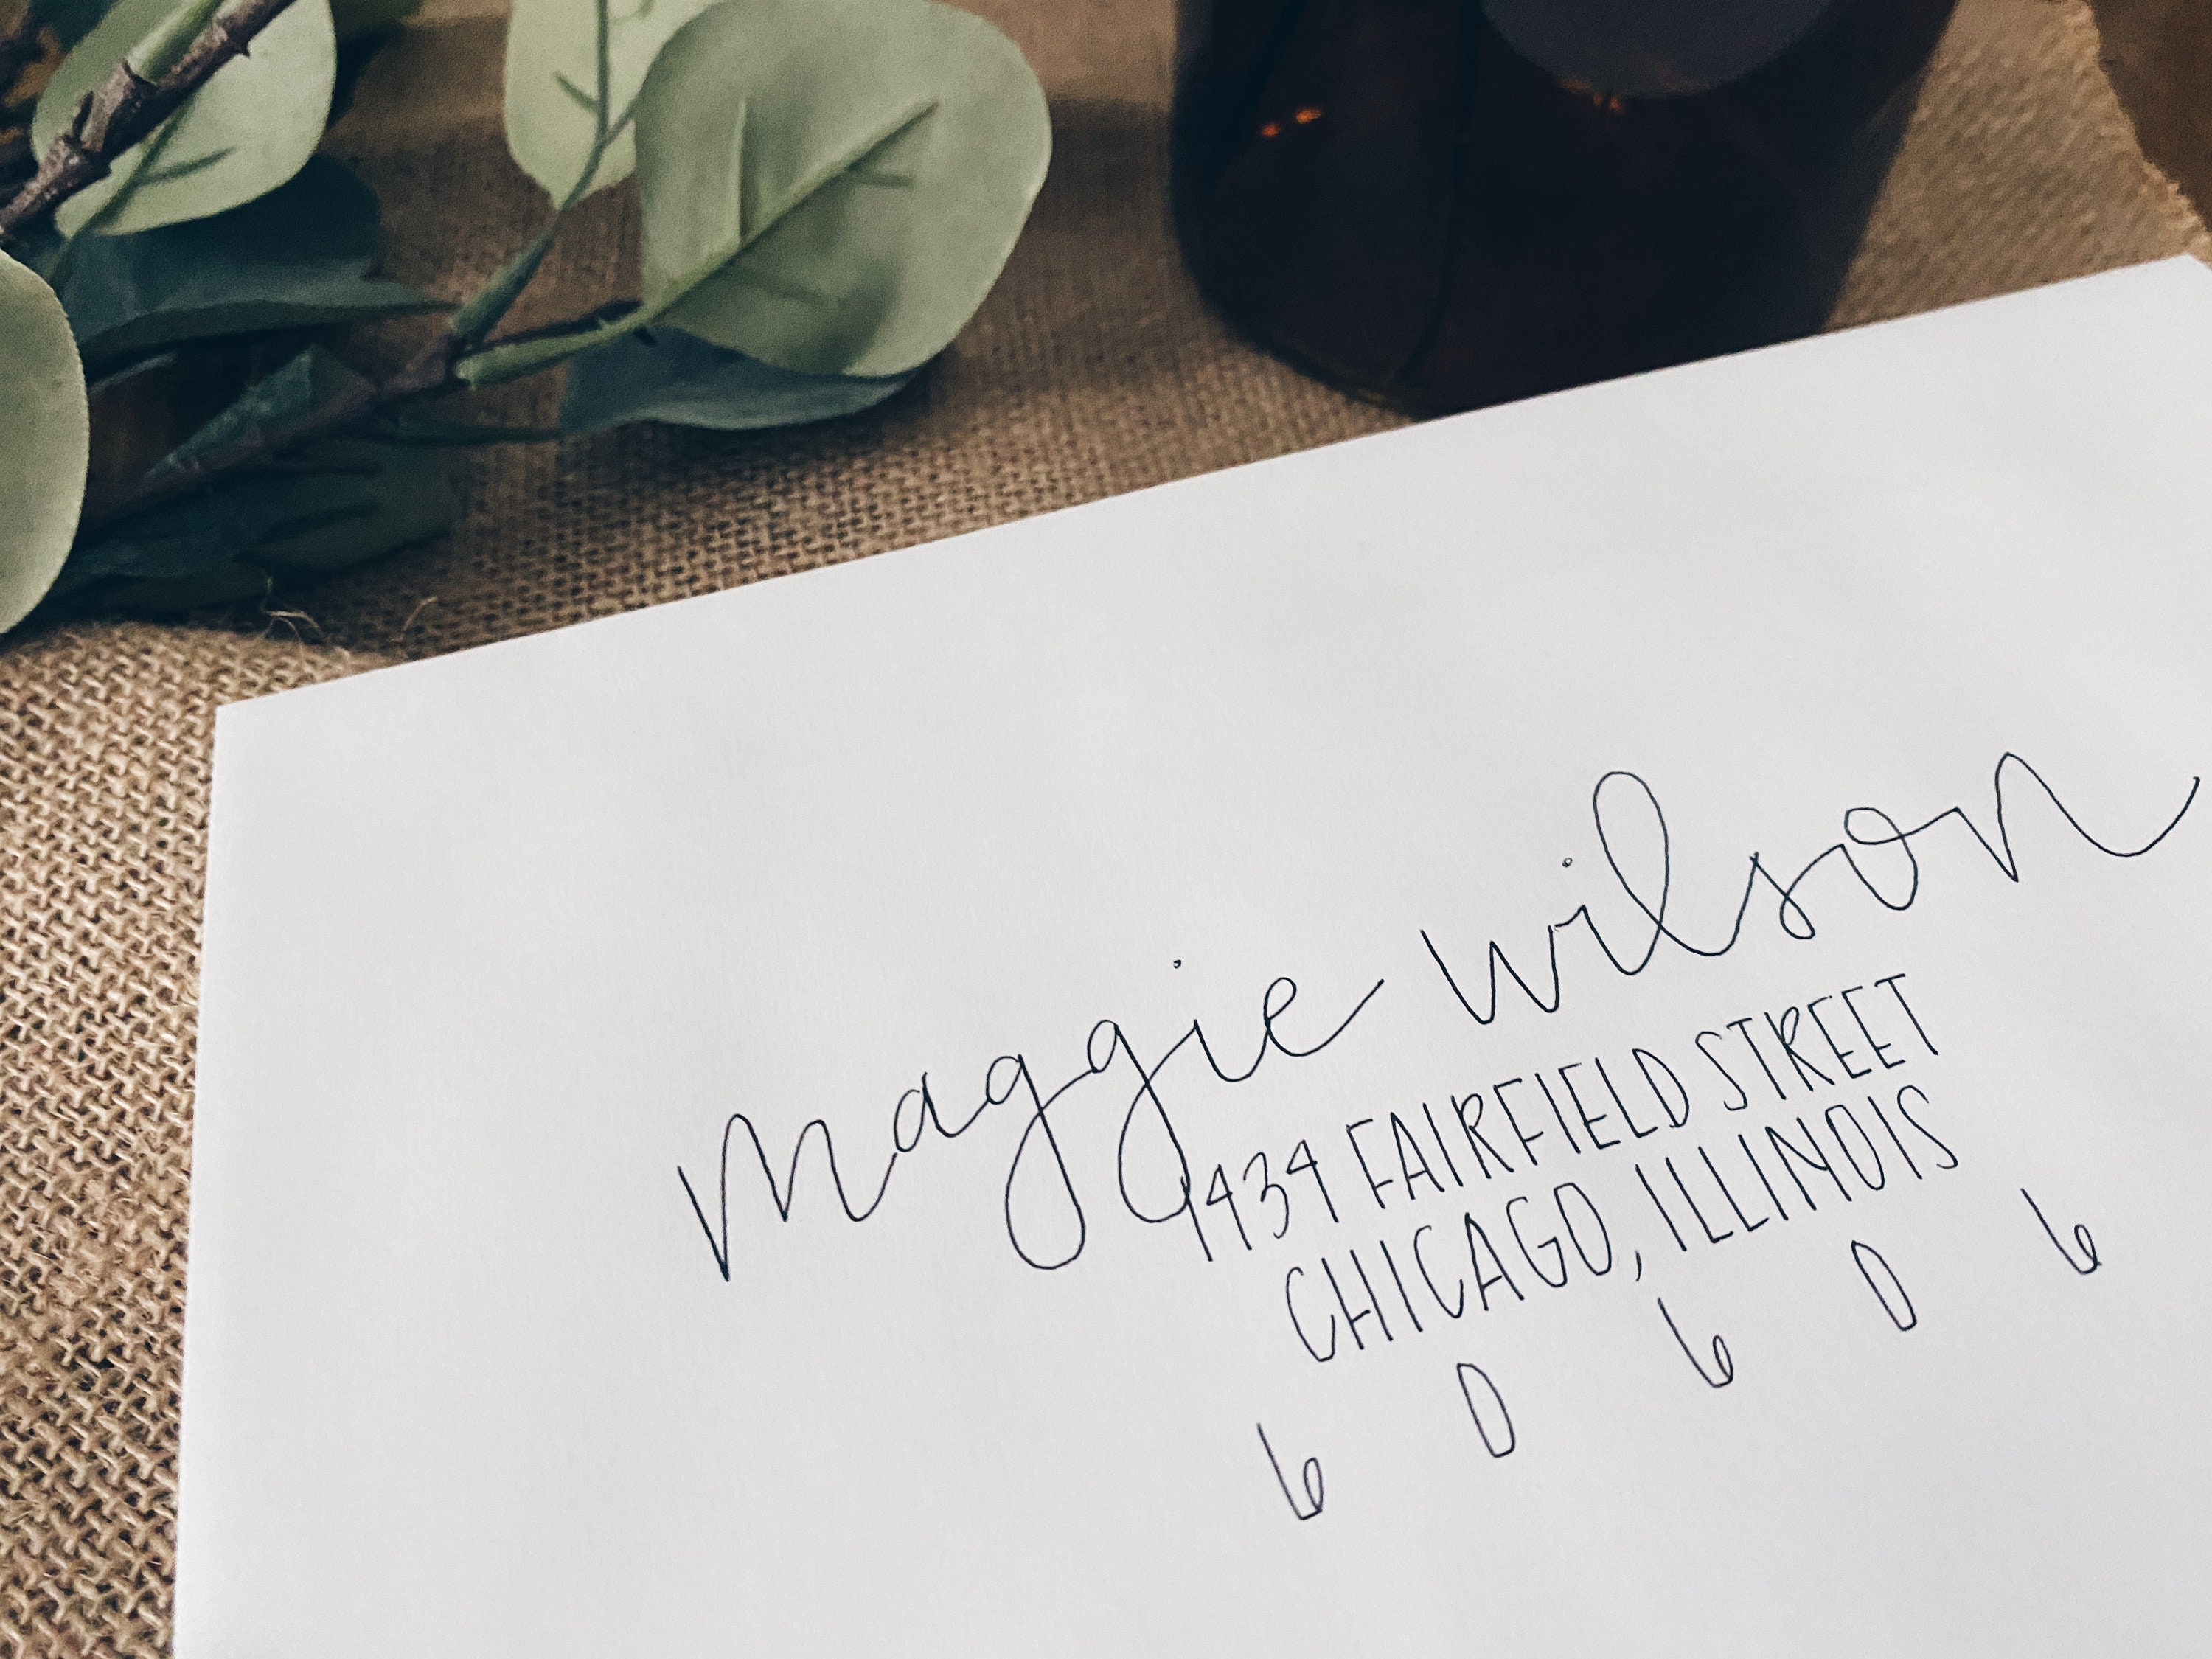 maggie wilson
1434 FAIRFIELD STREET
CHICAGO, ILLINOIS
6 0 6 0 6